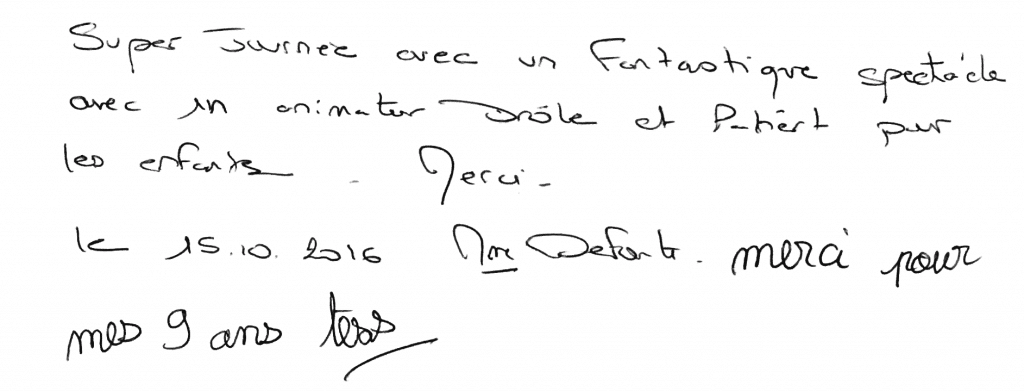 Super Journée avec un Fantastique spectacle
avec un animateur Drôle et Patient pour
les enfants. Merci -
le 15.10.2016 Mme Defont. merci pour
mes 9 ans tess